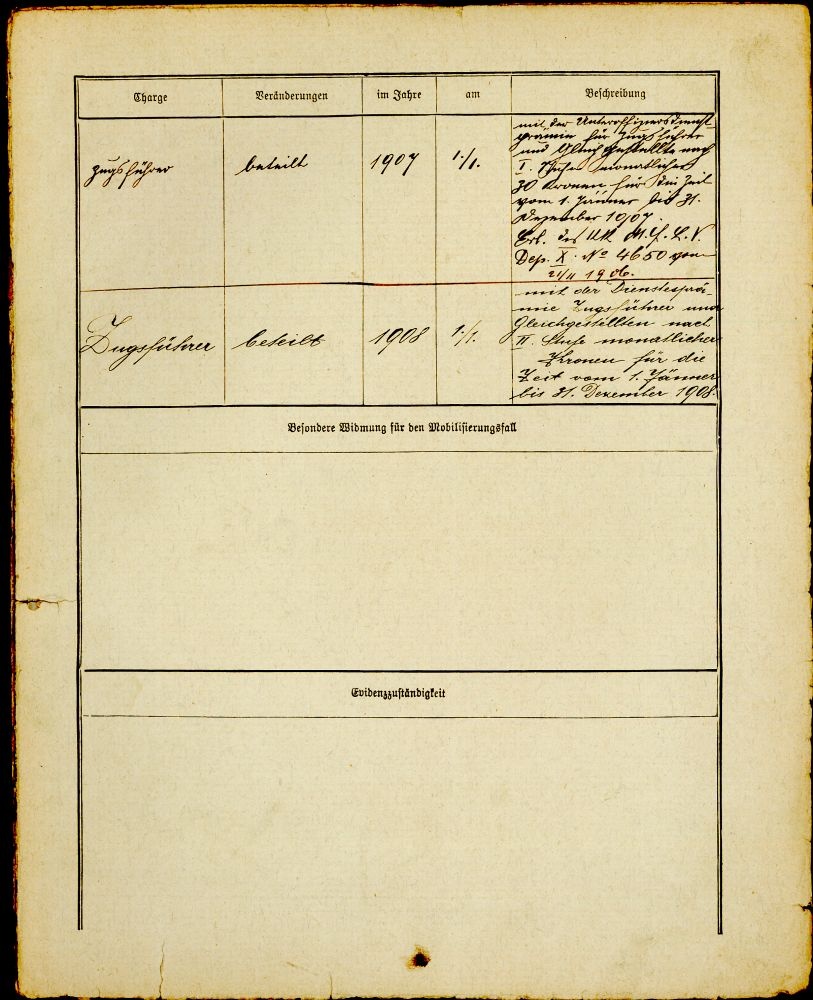 Charge Veränderungen im Jahre am Beschreibung
Zugsführer beteilt 1907 1./1.
mit der Unteroffiziersdienst-
prämie für Zugsführer
und Gleichgestellte nach
I. Stufe monatlicher
30 Kronen für die Zeit
vom 1. Jänner bis 31.
Dezember 1907.
Erl. des M. f. L. V.
Dep. X. No 4650 vom
21/11 1906.
Zugsführer beteilt 1908 1./1.
mit der Dienstesprä-
mie Zugsführer und
Gleichgestellten nach
II. Stufe monatlicher
Kronen für die
Zeit vom 1. Jänner
bis 31. Dezember 1908.
Besondere Widmung für den Mobilisierungsfall
Evidenzzuständigkeit